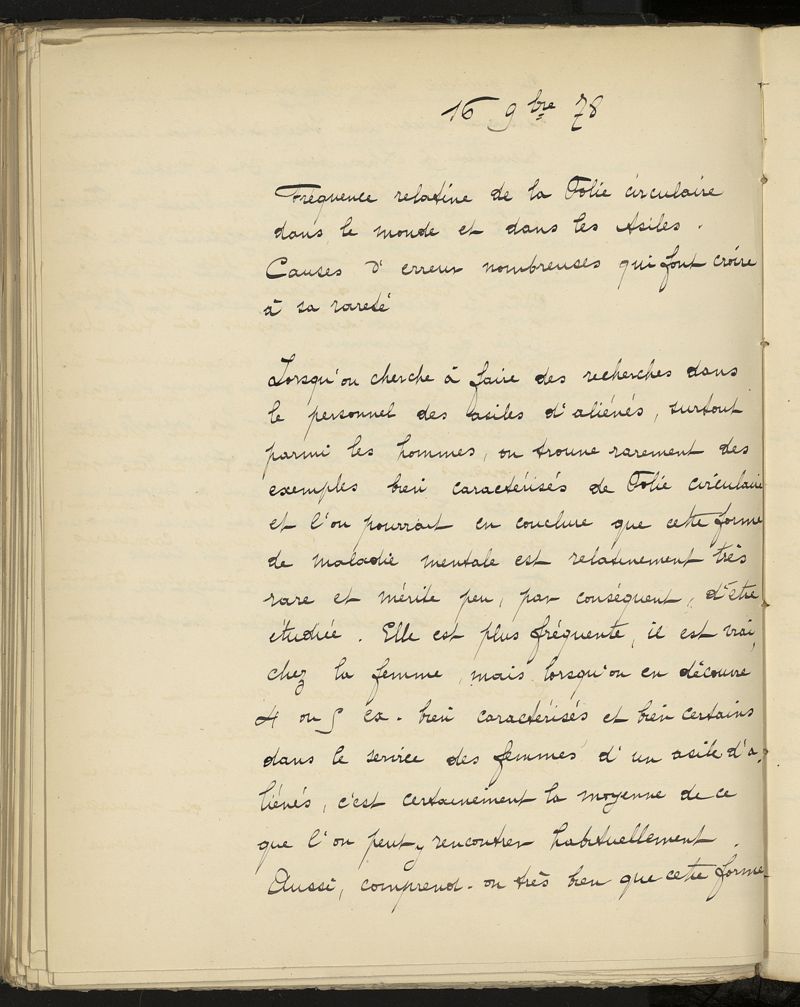 16 9bre 78
Fréquence relative de la Folie circulaire
dans le monde et dans les Asiles.
Causes d'erreur nombreuses qui font croire
à sa rareté
Lorsqu'on cherche à faire des recherches dans
le personnel des asiles d'aliénés, surtout
parmi les hommes, on trouve rarement des
exemples bien caractérisés de Folie circulaire
et l'on pourrait en conclure que cette forme
de maladie mentale est relativement très
rare et mérite peu, par conséquent, d'être
étudiée. Elle est plus fréquente, il est vrai,
chez la femme, mais lorsqu'on en découvre
4 ou 5 ex. bien caractérisés et bien certains
dans le service des femmes d'un asile d'a-
liénés, c'est certainement la moyenne de ce
que l'on peut y rencontrer habituellement.
Aussi, comprend-on très bien que cette forme